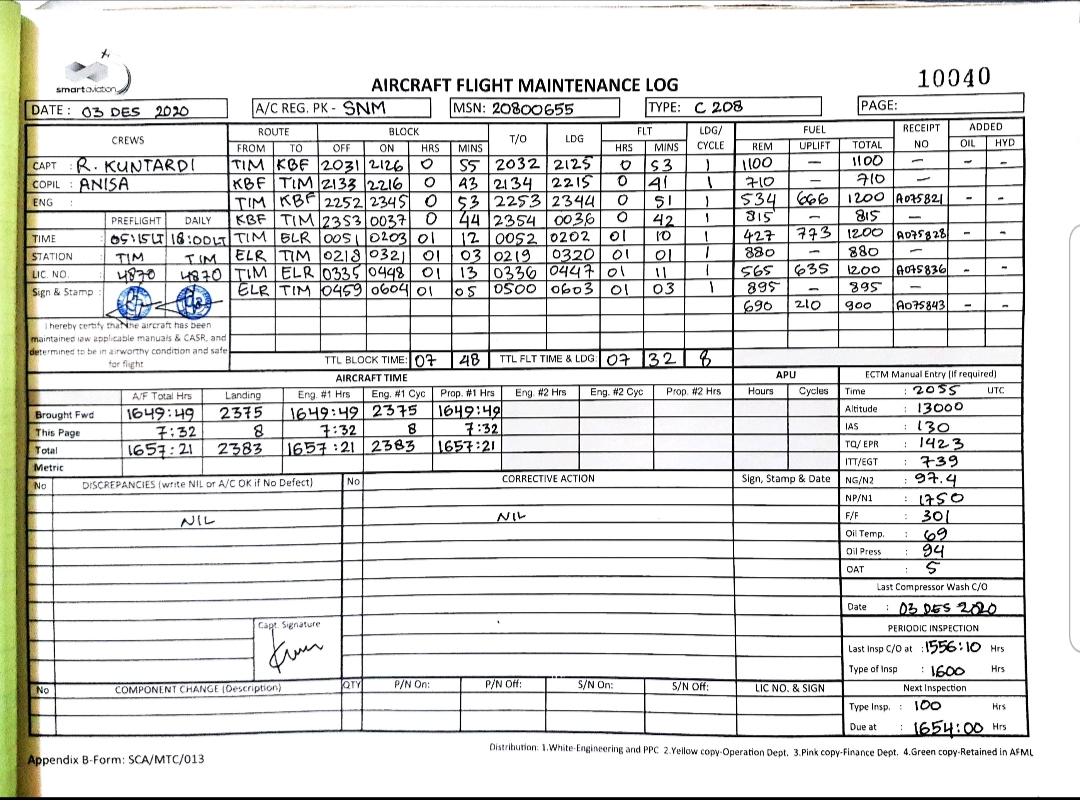 smartaviation
AIRCRAFT FLIGHT MAINTENANCE LOG
10040
DATE : 03 DES 2020 A/C REG. PK - SNM MSN: 20800655 TYPE: C 208 PAGE:
CREWS ROUTE BLOCK T/O LDG FLT LDG/ CYCLE FUEL RECEIPT NO ADDED
FROM TO OFF ON HRS MINS HRS MINS REM UPLIFT TOTAL OIL HYD
CAPT : R. KUNTARDI TIM KBF 2031 2126 0 55 2032 2125 0 53 1 1100 – 1100 – – –
COPIL : ANISA KBF TIM 2133 2216 0 43 2134 2215 0 41 1 710 – 710 –
ENG : TIM KBF 2252 2345 0 53 2253 2344 0 51 1 534 666 1200 A075821 – –
PREFLIGHT DAILY KBF TIM 2353 0037 0 44 2354 0036 0 42 1 815 – 815 –
TIME : 05:15LT 18:00LT TIM ELR 0051 0203 01 12 0052 0202 01 10 1 427 773 1200 A075828 – –
STATION : TIM TIM ELR TIM 0218 0321 01 03 0219 0320 01 01 1 880 – 880 –
LIC. NO. : 4870 4870 TIM ELR 0335 0448 01 13 0336 0447 01 11 1 565 635 1200 A075836 – –
Sign & Stamp : ELR TIM 0459 0604 01 05 0500 0603 01 03 1 895 – 895 –
690 210 900 A075843
I hereby certify that the aircraft has been
maintained iaw applicable manuals & CASR, and
determined to be in airworthy condition and safe
for flight
TTL BLOCK TIME: 07 48 TTL FLT TIME & LDG: 07 32 8
AIRCRAFT TIME APU ECTM Manual Entry (If required)
A/F Total Hrs Landing Eng. #1 Hrs Eng. #1 Cyc Prop. #1 Hrs Eng. #2 Hrs Eng. #2 Cyc Prop. #2 Hrs Hours Cycles Time : 2055 UTC
Brought Fwd 1649:49 2375 1649:49 2375 1649:49 Altitude : 13000
This Page 7:32 8 7:32 8 7:32 IAS : 130
Total 1657:21 2383 1657:21 2383 1657:21 TQ/ EPR : 1423
Metric ITT/EGT : 739
No DISCREPANCIES (write NIL or A/C OK if No Defect) No CORRECTIVE ACTION Sign, Stamp & Date NG/N2 : 97.4
NP/N1 : 1750
NIL NIL F/F : 301
Oil Temp. : 69
Oil Press : 94
OAT : 5
Last Compressor Wash C/O
Date : 03 DES 2020
Capt. Signature PERIODIC INSPECTION
Last Insp C/O at : 1556:10 Hrs
Type of Insp : 1600 Hrs
No COMPONENT CHANGE (Description) QTY P/N On: P/N Off: S/N On: S/N Off: LIC NO. & SIGN Next Inspection
Type Insp. : 100 Hrs
Due at : 1654:00 Hrs
Distribution: 1.White-Engineering and PPC 2.Yellow copy-Operation Dept. 3.Pink copy-Finance Dept. 4.Green copy-Retained in AFML
Appendix B-Form: SCA/MTC/013